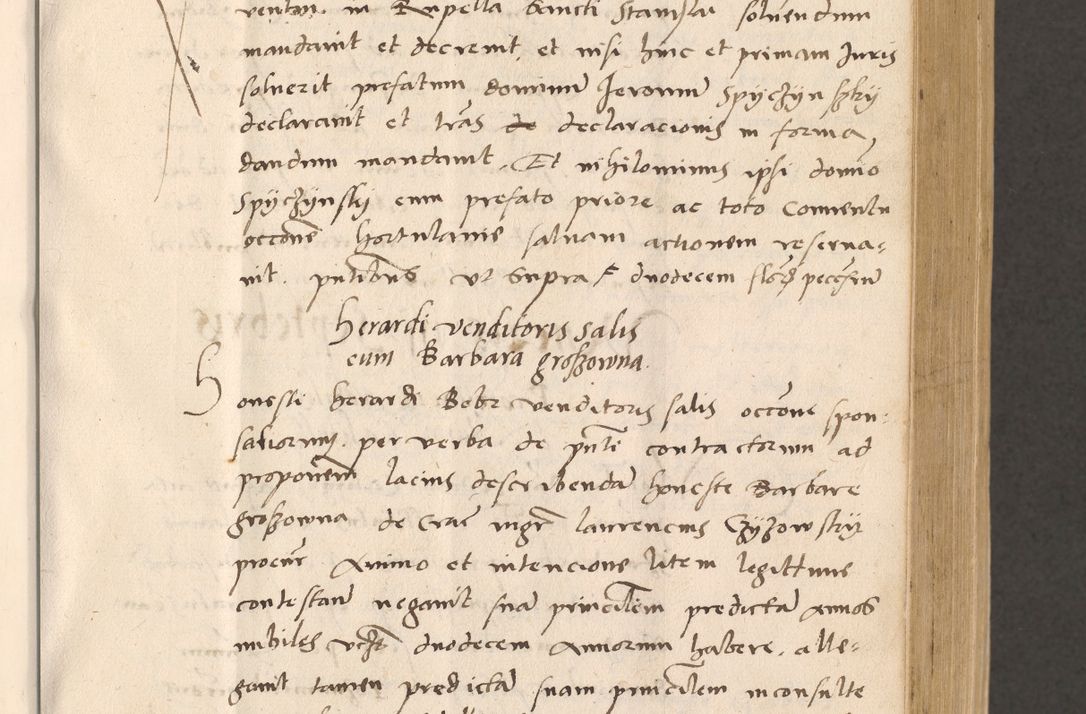 ventur. in Kapella Sancti Stanislai soluendum
mandauit et decreuit, et nisi hinc et primam Juris
soluerit prefatum dominum Jeronim Spyczynsky
declarauit et lras declaracionis in forma
dandum mandauit. Et nihilominus ipsi domio
Spyczynsky cum prefato priore ac toto Conuentu
occone hortulanie saluam actionem reserua-
uit. pntibus vt Supra duodecem
herardi venditoris salis
cum Barbara groszowna.
Honesti herardi Bobr venditoris salis occone spon-
saliorum. per verba de pnte contractorum ad
proponem lacius describendam honeste Barbare
groszowna de Crac mgr laurencius Czyzowsky
procur Animo et intencione litem legittime
contestan negauit sua principlem predicta annos
nubiles duodecem Annorum habere. alle-
gauit tamen predicta suam principlem inconsulte